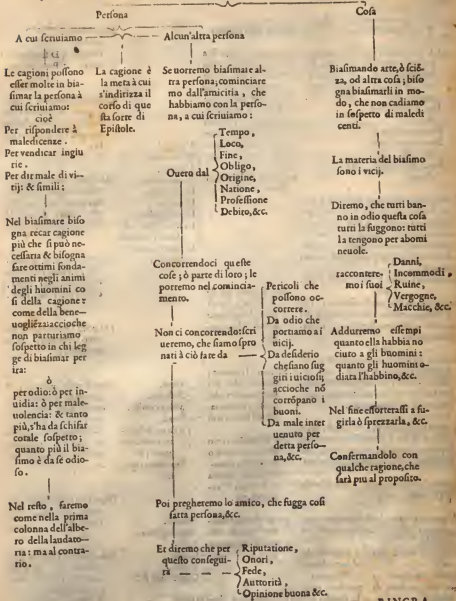 Persona
Cosa
A cui scriuiamo
Alcun'altra persona
Le cagioni possono
esser molte in bia-
simar la persona à
cui scriuiamo:
cioè
Per rispondere à
maledicenze.
Per vendicar ingiu
rie.
Per dir male di vi-
tij: & simili;
Nel biasimare biso
gna recar cagione
più che si può ne-
cessaria & bisogna
fare ottimi fonda-
menti negli animi
degli huomini co
si della cagione:
come della bene-
uoglieza: acciochè
non parturiamo
sospetto in chi leg
ge di biasimar per
ira:
ò
per odio: ò per in-
uidia: ò per male-
uolencia: & tanto
più, s'ha da schifar
cotale sospetto;
quanto più il bia-
simo è da se odio-
so.
Nel resto, faremo
come nella prima
colonna dell'albe-
ro della laudato-
ria: ma al contra-
rio.
La cagione è
la meta à cui
s'indirizza il
corso di que
sta sorte di
Epistole.
Se uorremo biasimare al-
tra persona; cominciare
mo dall'amicitia, che
habbiamo con la perso-
na, a cui scriuiamo:
Ouero dal
Tempo,
Loco,
Fine,
Obligo,
Origine,
Natione,
Professione
Debito, &c.
Concorrendoci queste
cose; ò parte di loro; le
porremo nel comincia-
mento.
Non ci concorrendo: scri
ueremo, che siamo spro
nati à ciò fare da
Pericoli che
possono oc-
correre.
Da odio che
portiamo a i
uicij.
Da desiderio
che siano fug
giti i uiciosi;
accioche nō
corrōpano i
buoni.
Da male inter
uenuto per
detta perso-
na, &c.
Poi pregheremo lo amico, che fugga cosi
fatta persona, &c.
Et diremo che per
questo consegui-
rà
Riputatione,
Onori,
Fede,
Auttorità,
Opinione buona &c.
Biasimando arte, ò sciē-
za, od altra cosa; biso
gna biasimarli in mo-
do, che non cadiamo
in sospetto di maledi
centi.
La materia del biasimo
sono i vicij.
Diremo, che tutti han-
no in odio questa cosa
tutti la fuggono: tutti
la tengono per abomi
neuole.
raccontere-
mo i suoi
Danni,
Incommodi,
Ruine,
Vergogne,
Macchie, &c.
Addurremo essempi
quanto ella habbia no
ciuto a gli huomini:
quanto gli huomini o-
diata l'habbino, &c.
Nel fine essorterassi a fu-
girla ò sprezzarla, &c.
Confermandolo con
qualche ragione, che
sarà piu al proposito.
RINGRA